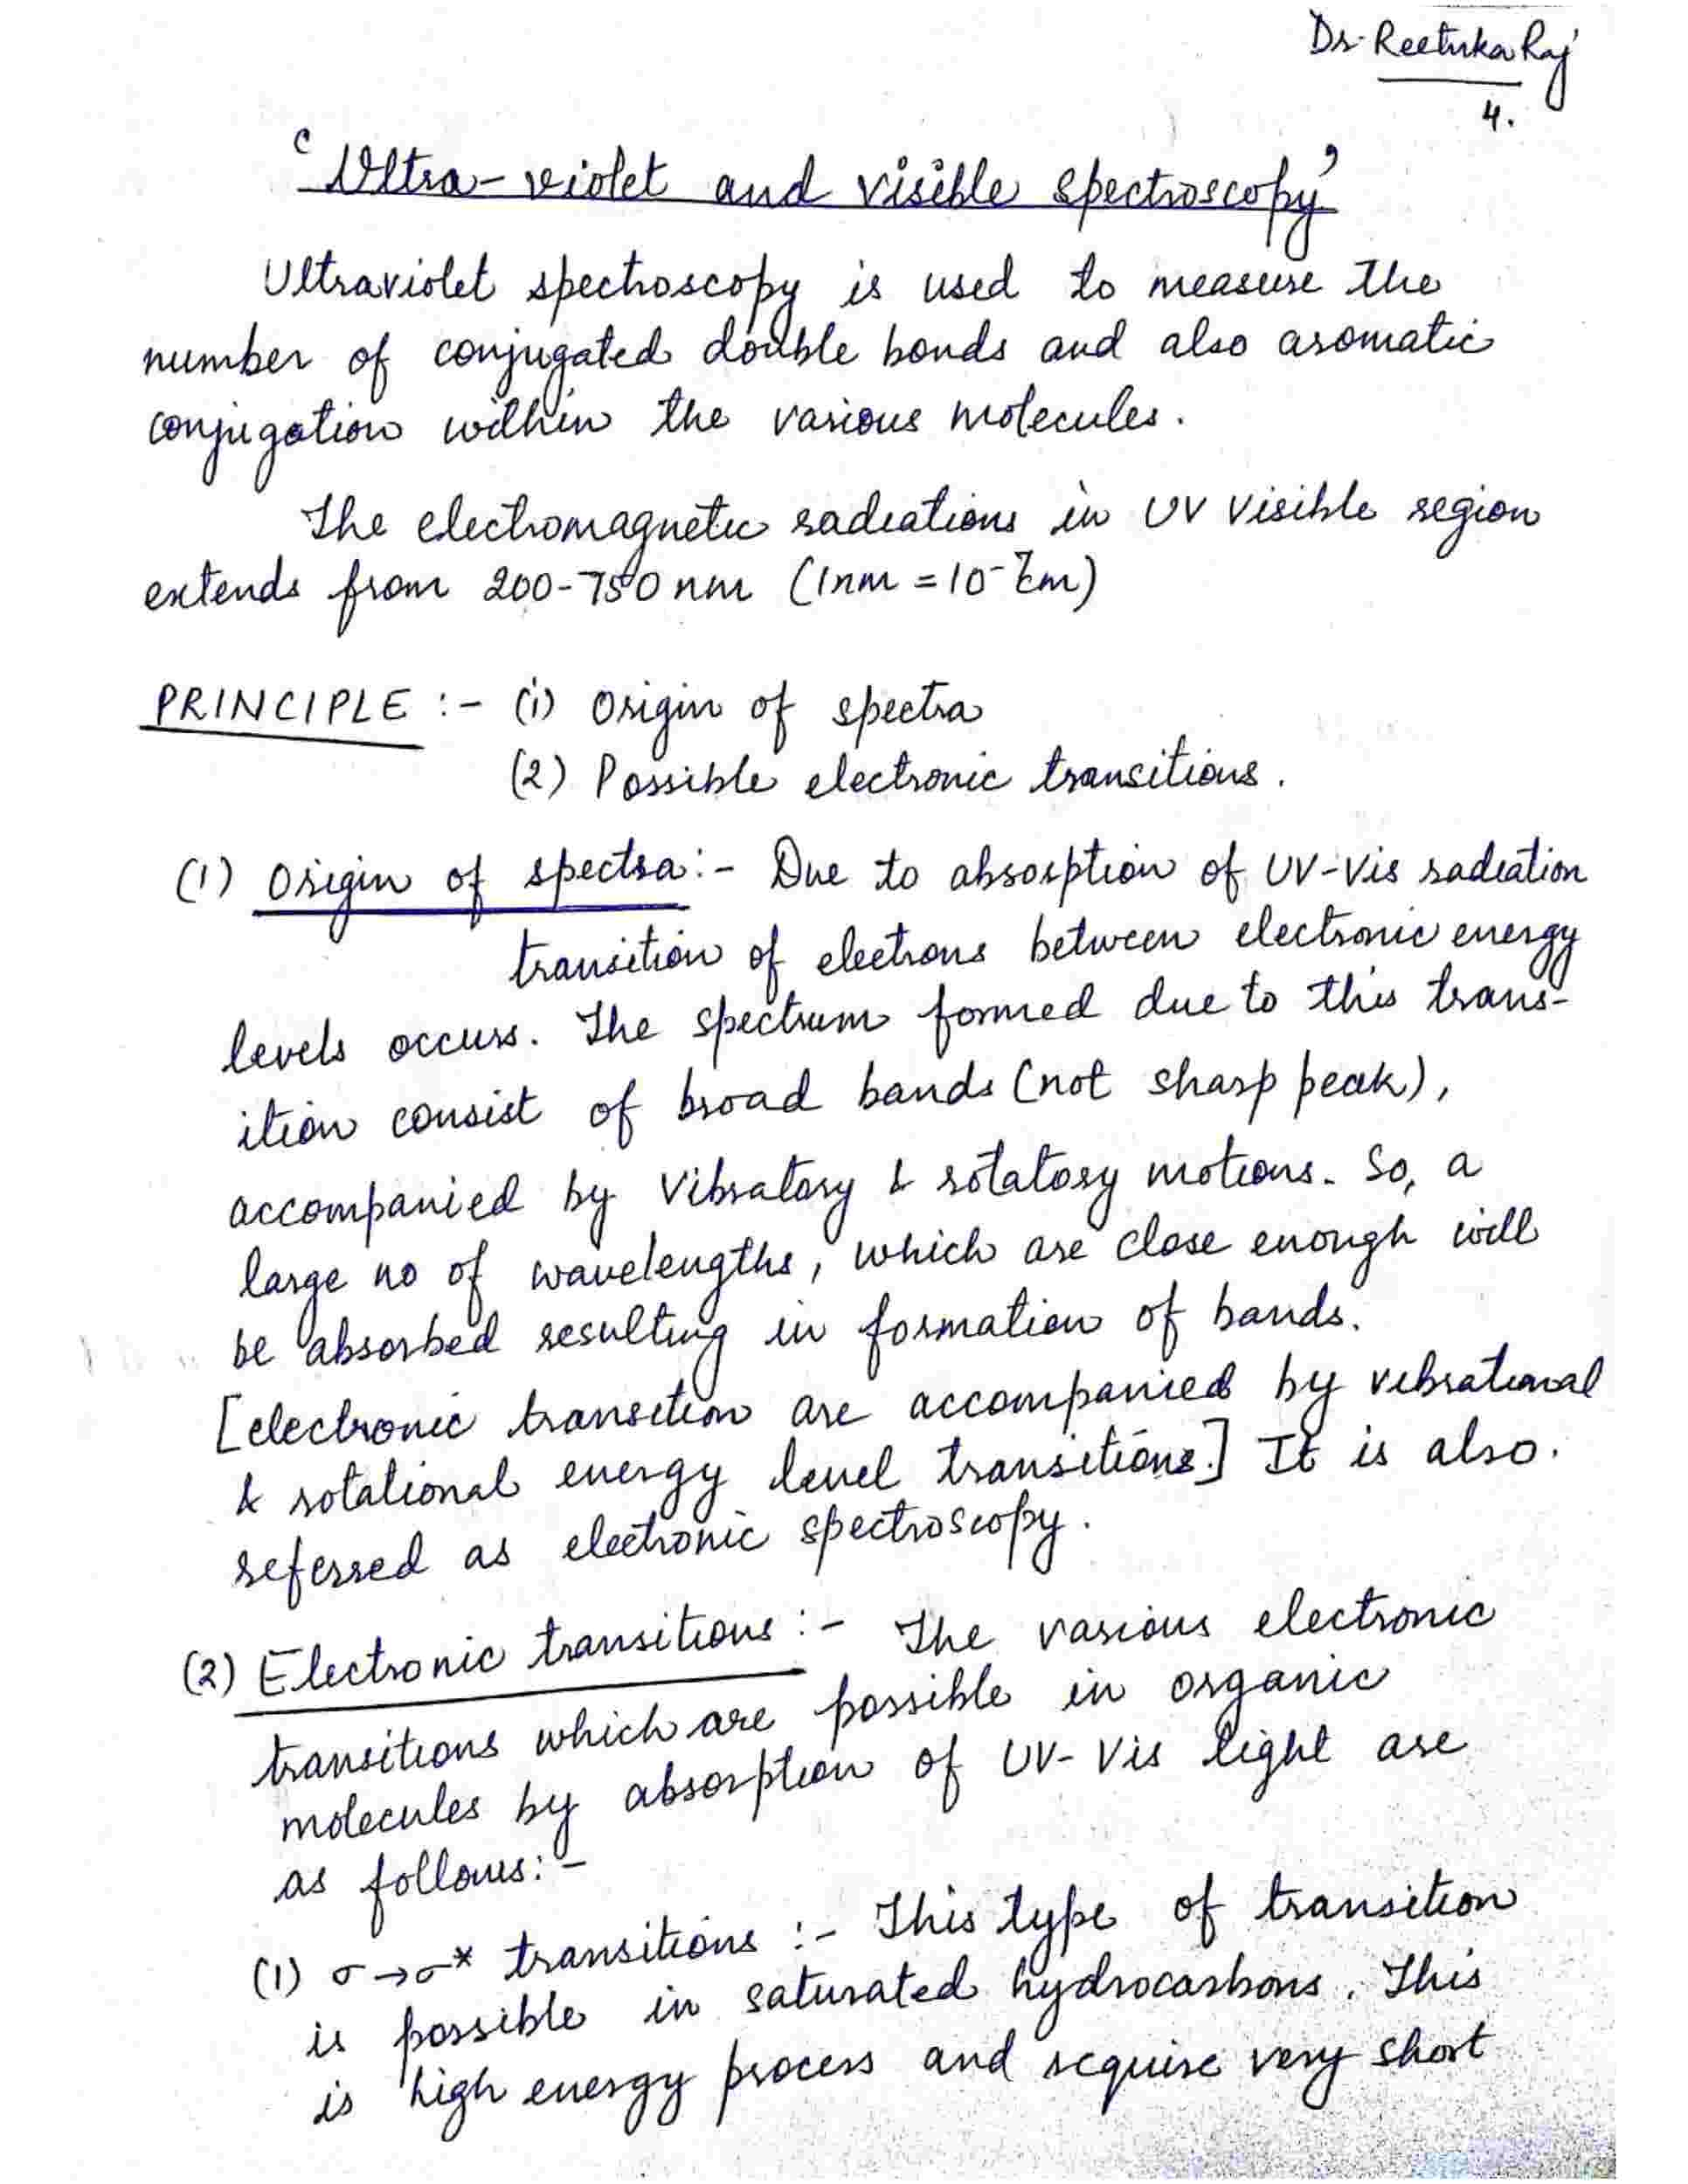 Dr. Reetuka Raj
4.
‘Ultra-violet and visible spectroscopy’
Ultraviolet spectroscopy is used to measure the
number of conjugated double bonds and also aromatic
conjugation within the various molecules.
The electromagnetic radiations in UV visible region
extends from 200-750 nm (1nm = 10⁻⁷cm)
PRINCIPLE :- (i) Origin of spectra
(2) Possible electronic transitions.
(1) Origin of spectra:- Due to absorption of UV-Vis radiation
transition of electrons between electronic energy
levels occurs. The spectrum formed due to this trans-
ition consist of broad bands (not sharp peak),
accompanied by Vibratory & rotatory motions. So, a
large no of wavelengths, which are close enough will
be absorbed resulting in formation of bands.
[electronic transition are accompanied by vibrational
& rotational energy level transitions.] It is also.
referred as electronic spectroscopy.
(2) Electronic transitions :- The various electronic
transitions which are possible in organic
molecules by absorption of UV-Vis light are
as follows:-
(1) σ→σ* transitions :- This type of transition
is possible in saturated hydrocarbons. This
is high energy process and require very short